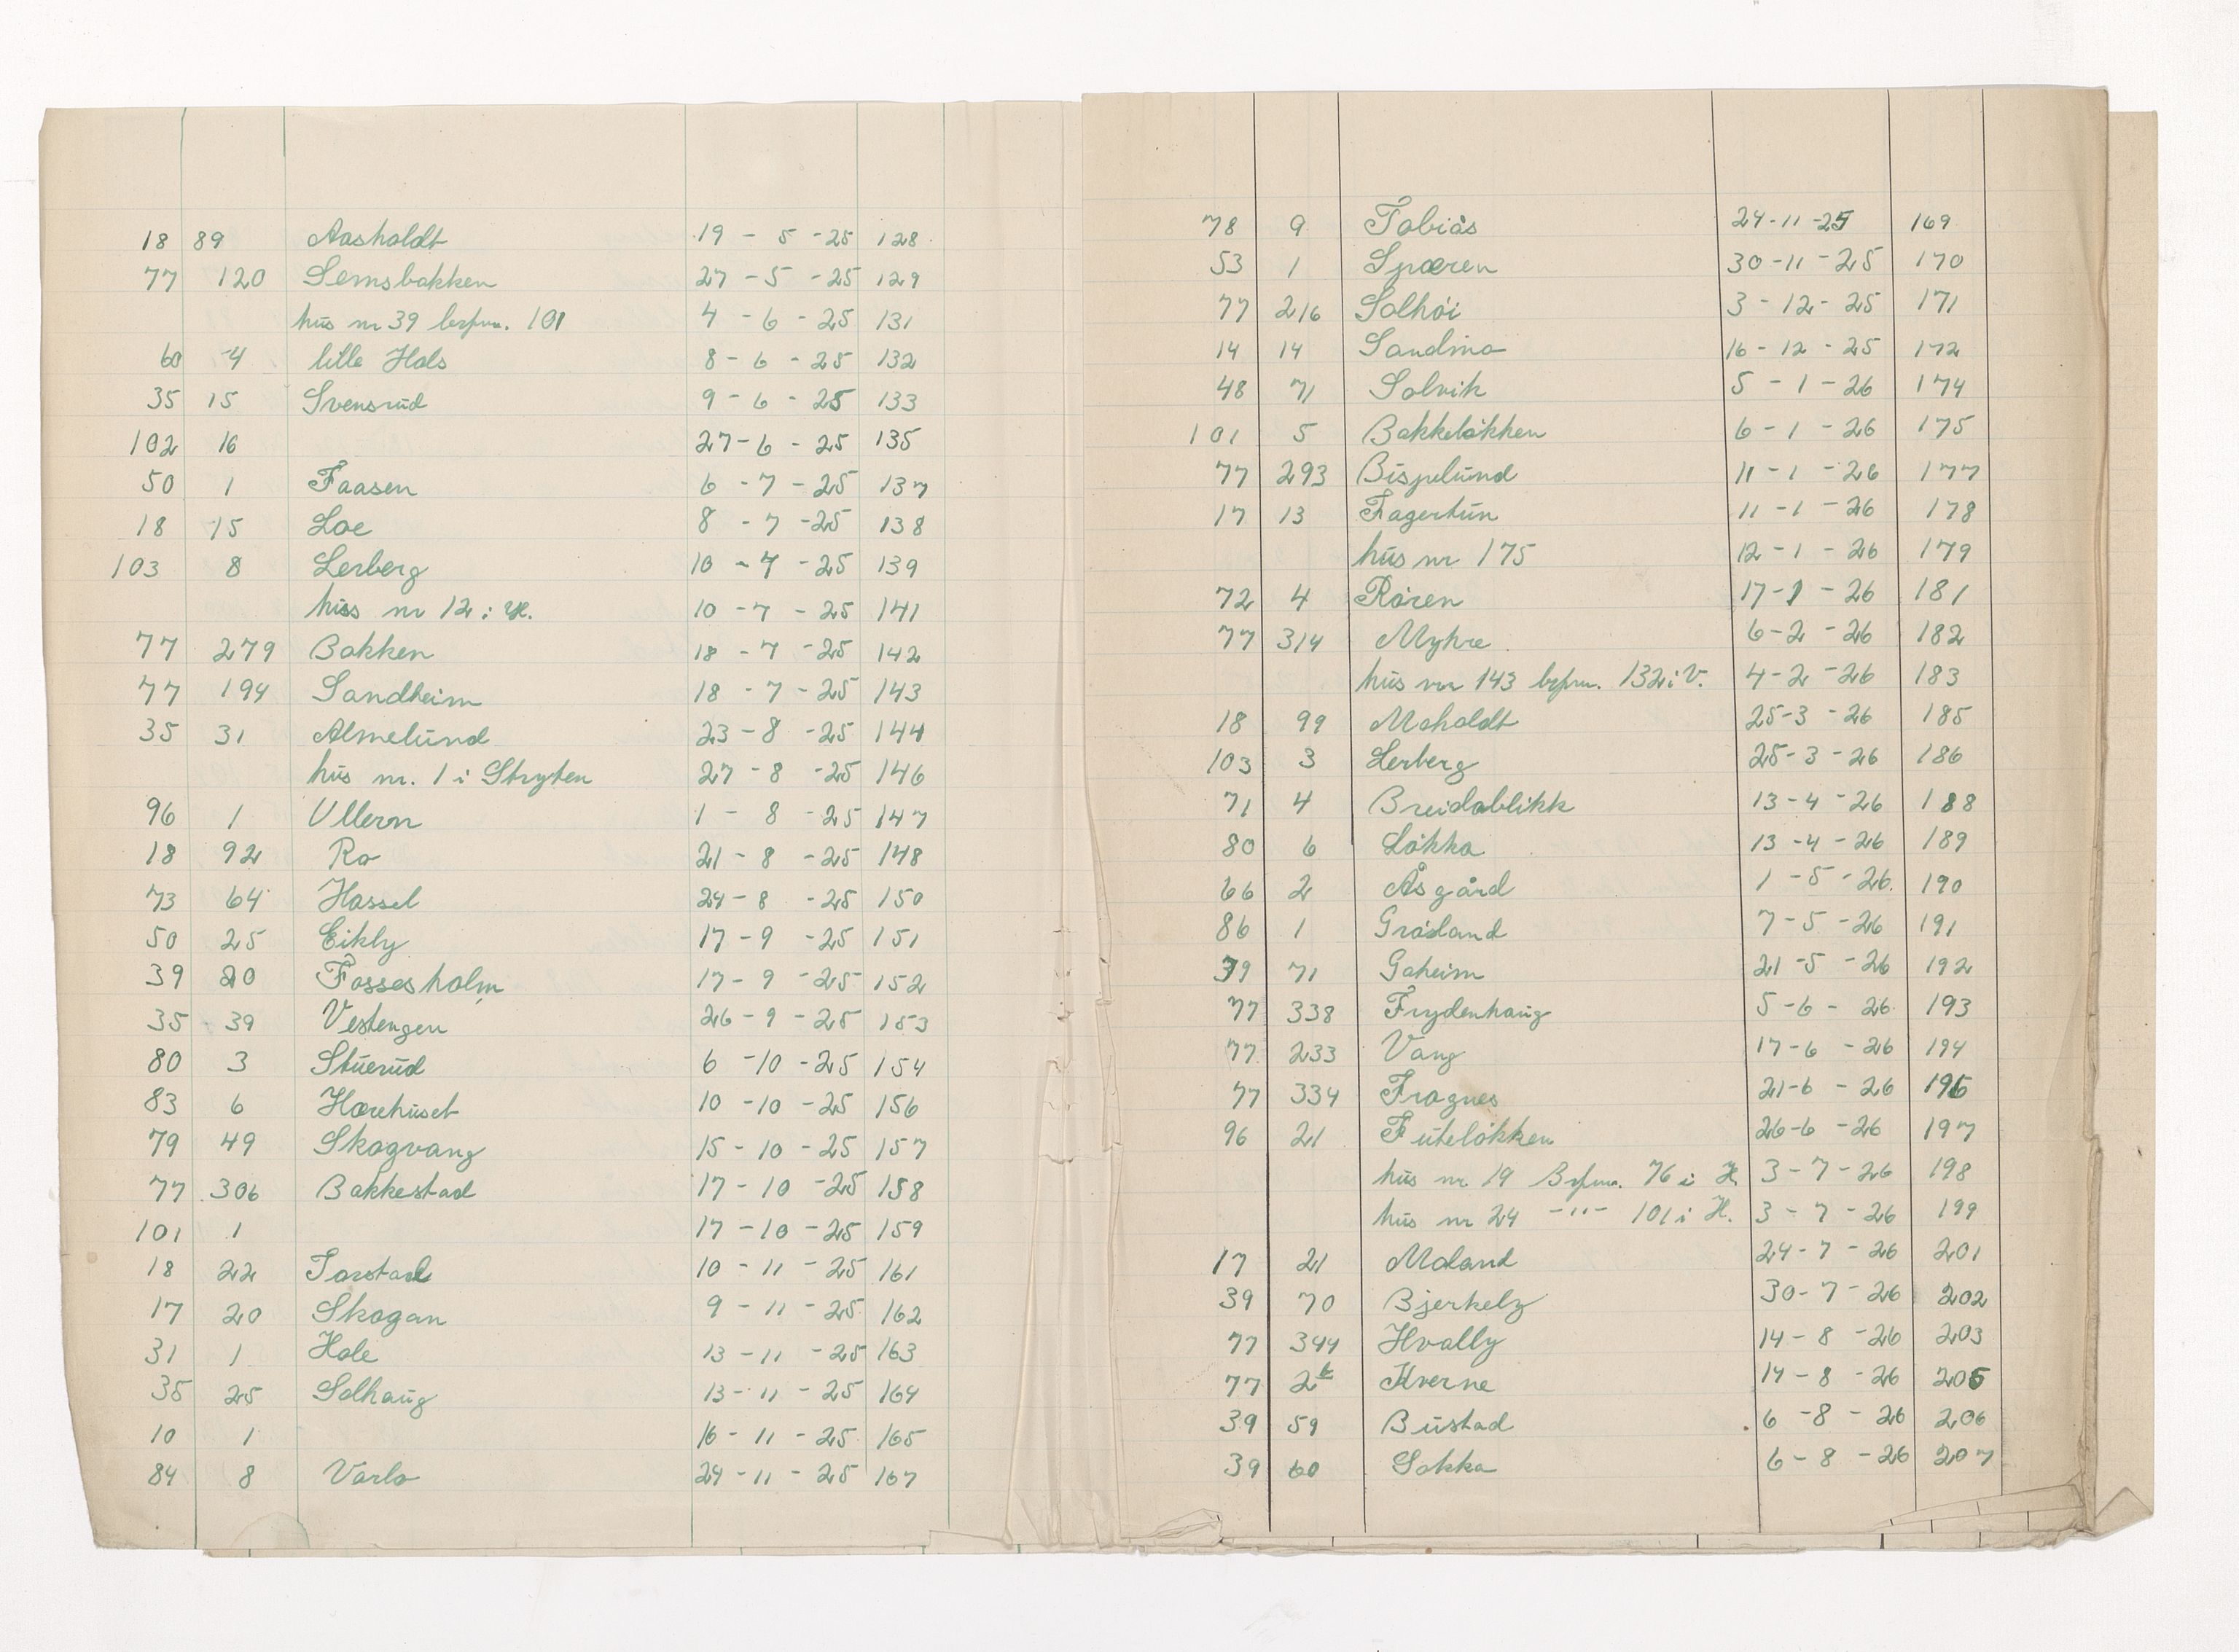 18 89 Aasholdt 19 - 5 - 25 128
77 120 Semsbakken 27 - 5 - 25 129
hus nr 39 brpm. 101 4 - 6 - 25 131
60 4 lille Hals 8 - 6 - 25 132
35 15 Svensrud 9 - 6 - 25 133
102 16 27 - 6 - 25 135
50 1 Faasen 6 - 7 - 25 137
18 15 Loe 8 - 7 - 25 138
103 8 Lerberg 10 - 7 - 25 139
huss nr 12 i H. 10 - 7 - 25 141
77 279 Bakken 18 - 7 - 25 142
77 194 Sandheim 18 - 7 - 25 143
35 31 Almelund 23 - 8 - 25 144
hus nr. 1 i Stryken 27 - 8 - 25 146
96 1 Ullern 1 - 8 - 25 147
18 92 Ro 21 - 8 - 25 148
73 64 Hassel 24 - 8 - 25 150
50 25 Eikly 17 - 9 - 25 151
39 20 Fossesholm 17 - 9 - 25 152
35 39 Vestengen 26 - 9 - 25 153
80 3 Stuerud 6 - 10 - 25 154
83 6 Horehuset 10 - 10 - 25 156
79 49 Skogvang 15 - 10 - 25 157
77 306 Bakkestad 17 - 10 - 25 158
101 1 17 - 10 - 25 159
18 22 Torstad 10 - 11 - 25 161
17 20 Skogan 9 - 11 - 25 162
31 1 Hole 13 - 11 - 25 163
35 25 Solhaug 13 - 11 - 25 164
10 1 16 - 11 - 25 165
84 8 Varlo 24 - 11 - 25 167
78 9 Tobiås 24 - 11 - 25 169
53 1 Spæren 30 - 11 - 25 170
77 216 Solhöi 3 - 12 - 25 171
14 14 Sandmo 16 - 12 - 25 172
48 71 Solvik 5 - 1 - 26 174
101 5 Bakkelökken 6 - 1 - 26 175
77 293 Bispelund 11 - 1 - 26 177
17 13 Fagertun 11 - 1 - 26 178
hus nr 175 12 - 1 - 26 179
72 4 Rören 17 - 1 - 26 181
77 314 Myhre 6 - 2 - 26 182
hus nr 143 brpm. 132 i V. 4 - 2 - 26 183
18 99 Moholdt 25 - 3 - 26 185
103 3 Lerberg 25 - 3 - 26 186
71 4 Breidablikk 13 - 4 - 26 188
80 6 Lökka 13 - 4 - 26 189
66 2 Åsgård 1 - 5 - 26. 190
86 1 Grösland 7 - 5 - 26 191
39 71 Goheim 21 - 5 - 26 192
77 338 Frydenhaug 5 - 6 - 26 193
77 233 Vang 17 - 6 - 26 194
77 334 Frognes 21 - 6 - 26 196
96 21 Futelökken 26 - 6 - 26 197
hus nr 19 Brpm. 76 i H. 3 - 7 - 26 198
hus nr 24 -"- 101 i H. 3 - 7 - 26 199
17 21 Moland 24 - 7 - 26 201
39 70 Bjerkely 30 - 7 - 26 202
77 344 Hvally 14 - 8 - 26 203
77 2 Kverne 14 - 8 - 26 205
39 59 Bustad 6 - 8 - 26 206
39 60 Sokka 6 - 8 - 26 207